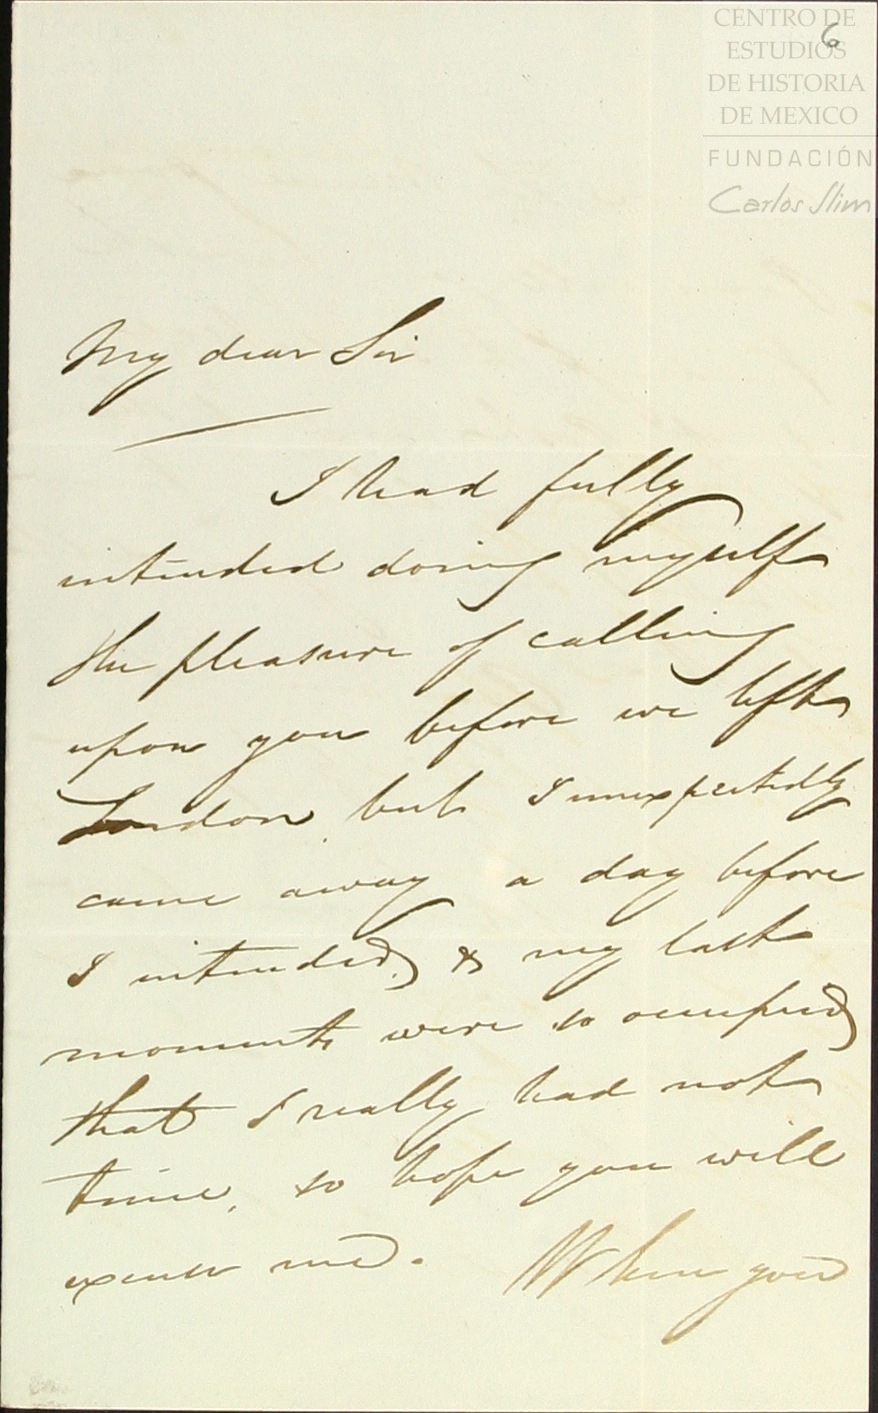 CENTRO DE
ESTUDIOS
DE HISTORIA
DE MEXICO
FUNDACIÓN
Carlos Slim
6
My dear Sir
I had fully
intended doing myself
the pleasure of calling
upon you before we left
London but I unexpectedly
came away a day before
I intended, & my last
moments were so occupied
that I really had not
time, so hope you will
excuse me. When you